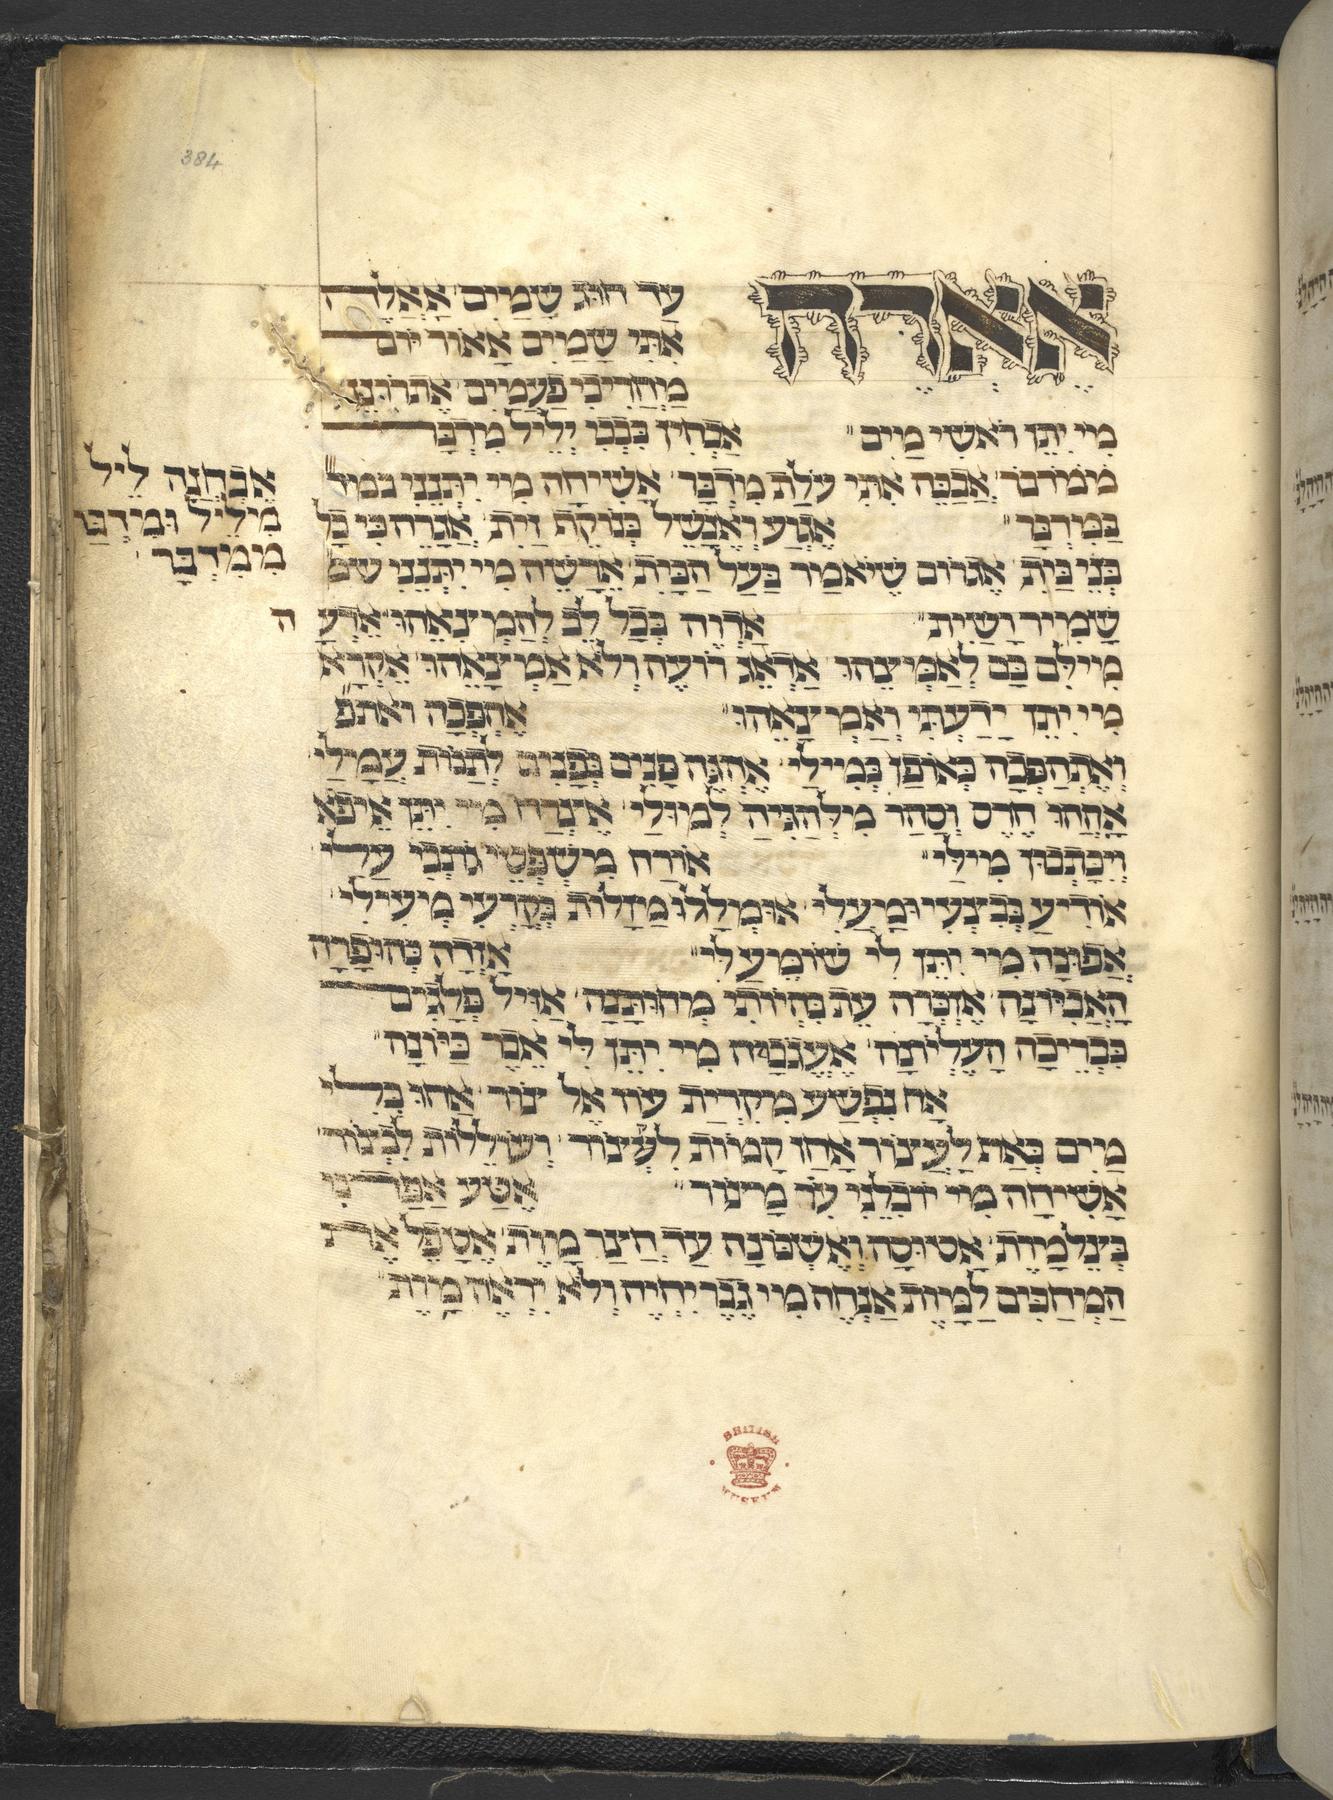 384
אאדה עד חוג שמים אאלה
אתי שמים אאור יום
מחריבי פעמים
מי יתן ראשי מים אבחין בבכי יליל מדבר
ממדבר אבכה אתי עלת מדבר אשיחה מי יתנני במל
במדבר אגוע ואכשל כנוקף זית אגרה בי כל
בני בית אגרום שיאמר בעל הבית ארשה מי יתנני שמ
שמיר ושית ארוה בכל לב להמציאהו ארע ה
מילים בם לאמיצהו אדאג רועה ולא אמצאהו אקרא
מי יתן ידעתי ואמצאהו אהפכה ואתפ
ואתהפכה כאופן במילי אהגה פנים בפנים לתנות עמלי
אחהו חרס וסהר מלהגיה למולי אצרח מי יתן איפא
ויכתבון מילי אורח משפטי כתבי עלי
אודיע בבצעי ומעלי אומללו מזלות בקרעי מעילי
אפונה מי יתן לי שומע לי אזרה כחופרה
האביונה אזכרה עת בהיותי מחותנה אויל פלגים
כבריכה העליונה אעגבה מי יתן לי אבר כיונה
אח נפשע מקרית עוז אל צור אחו בלי
מים באת לעצור אחז קמות לעצור ושוללות לבצור
אשיחה מי יובלני עיר מצור אטע אפדני
בצלמות אטוסה ואשכונה עד חצר מות אטפל את
המחכים למות אנחה מי גבר יחיה ולא יראה מות
אבחנה ליל
מליל ומדבר
ממדבר
BRITISH
MUSEUM